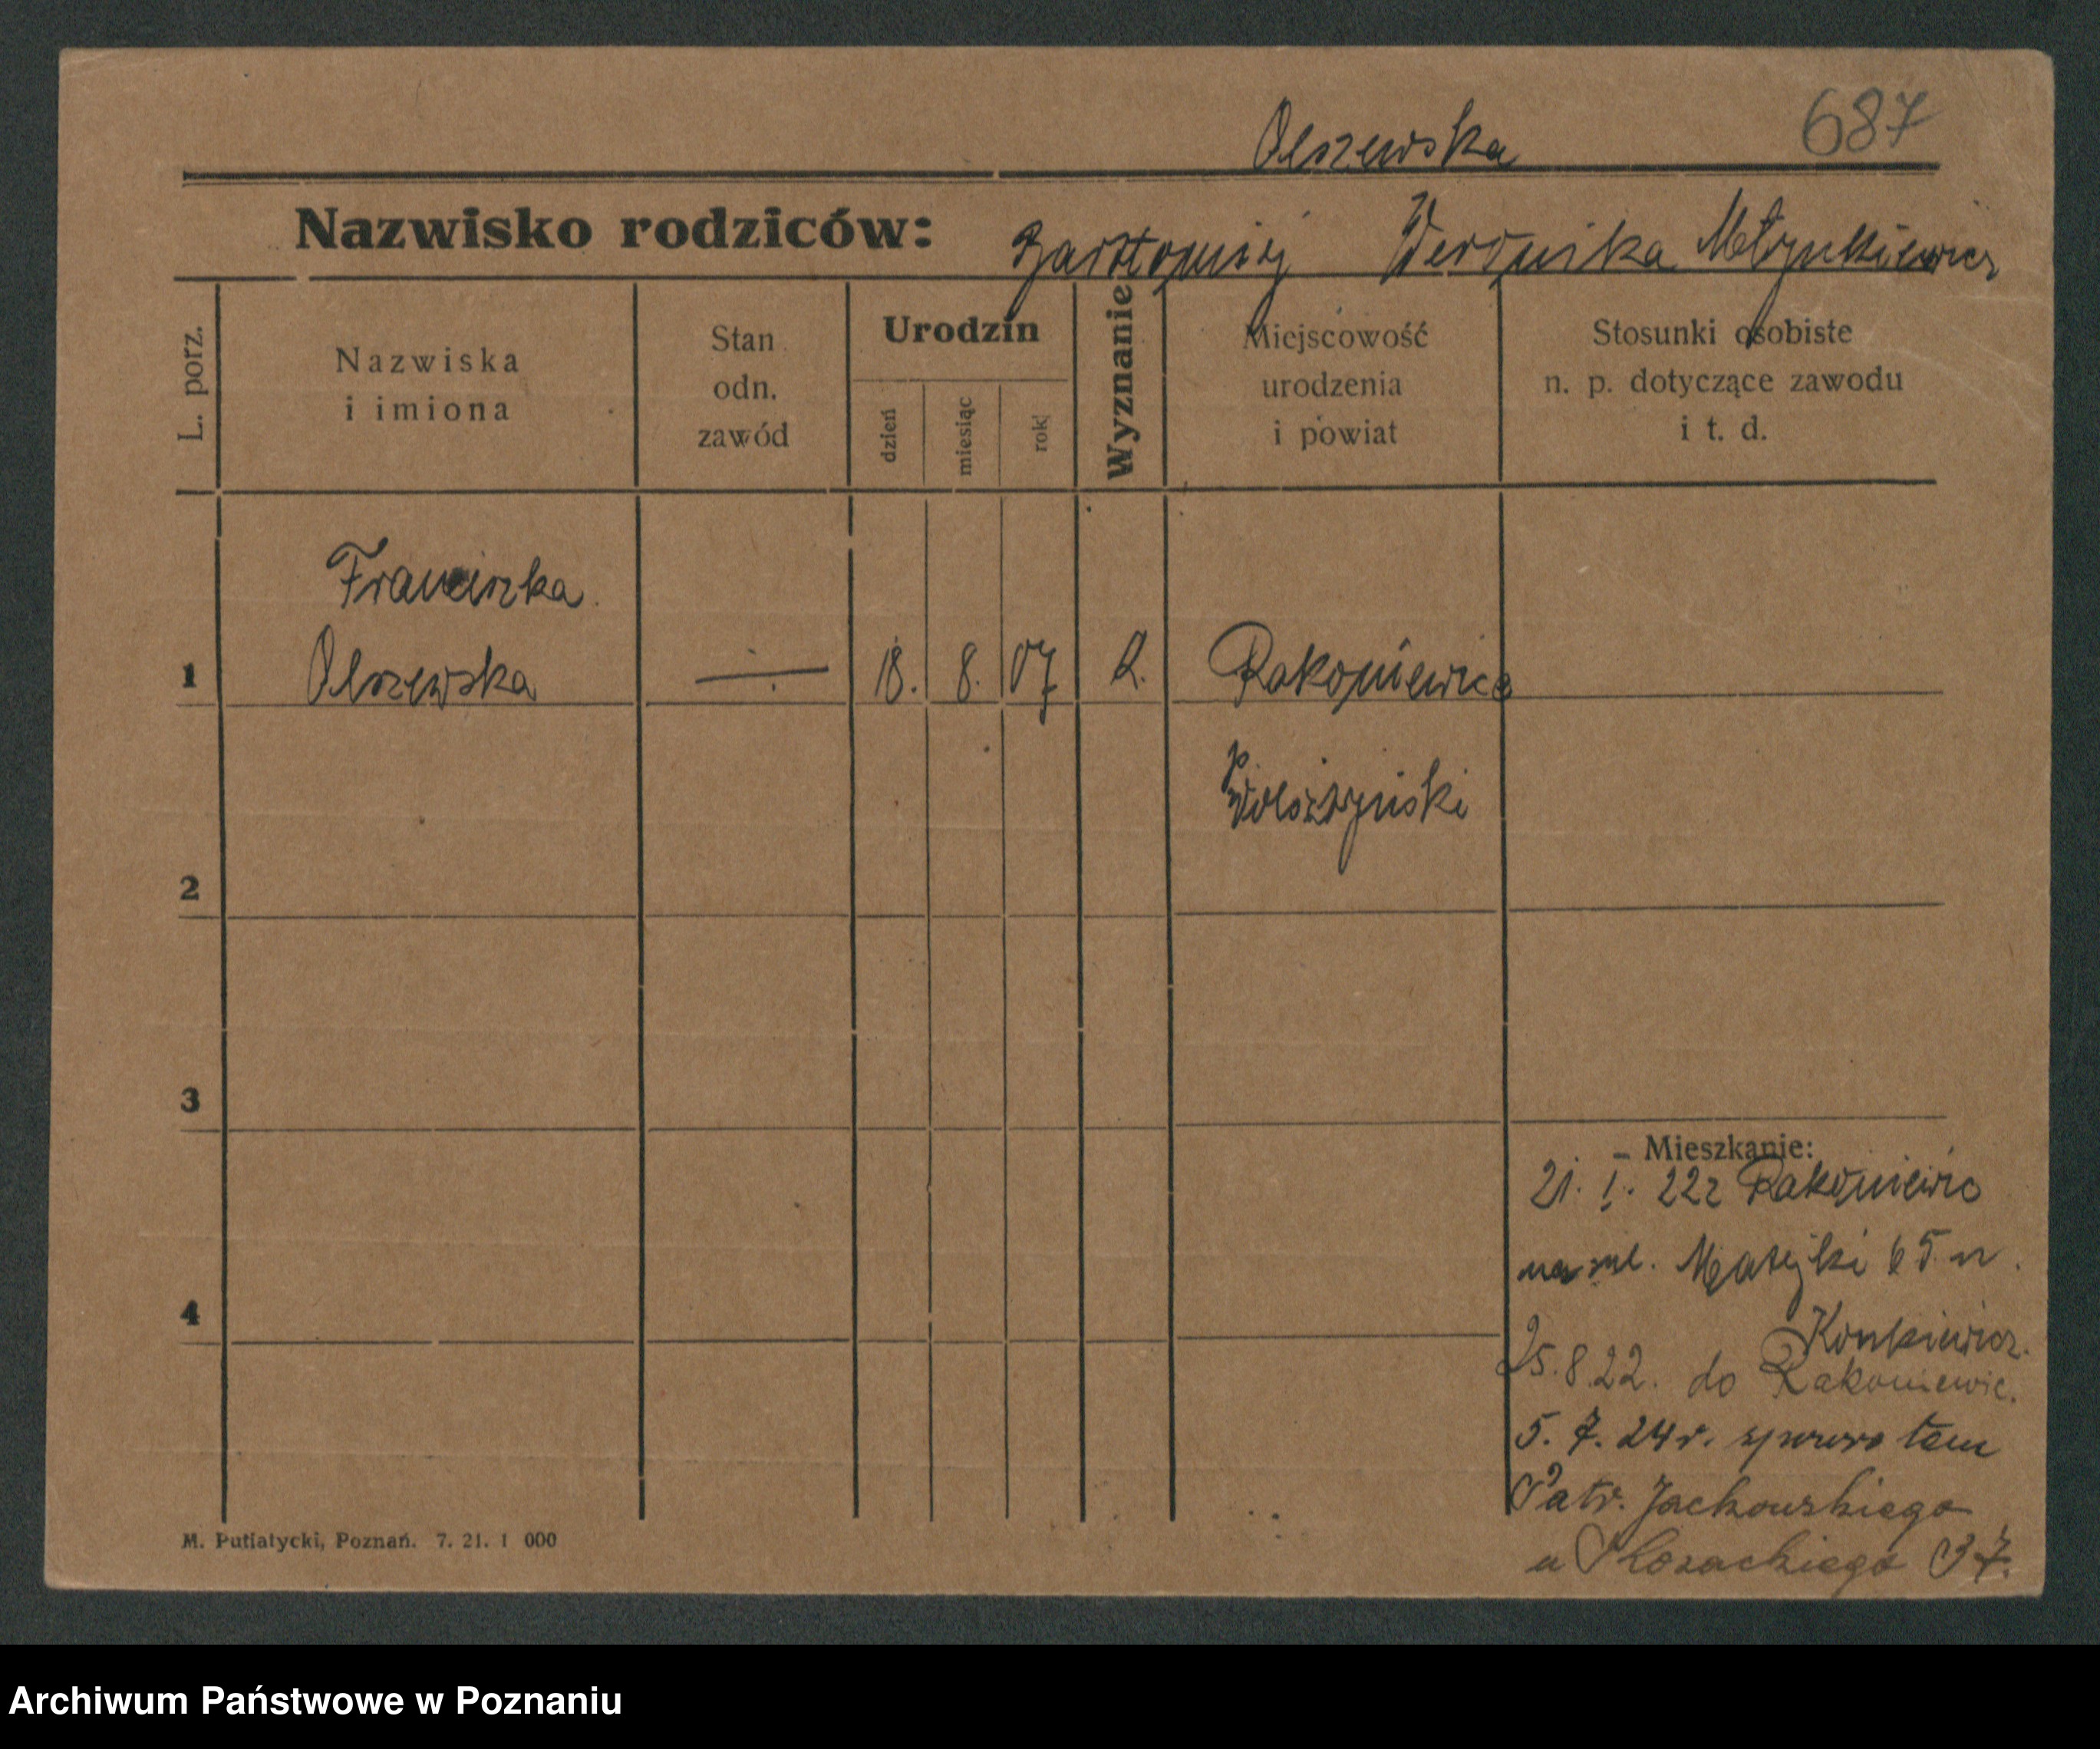 Olszewska 687
Nazwisko rodziców: Bartłomiej Weronika Młynkiewicz
L. porz.
Nazwiska
i imiona
Stan
odn.
zawód
Urodzin
dzień
miesiąc
rok
Wyznanie
Miejscowość
urodzenia
i powiat
Stosunki osobiste
n. p. dotyczące zawodu
i t. d.
Franciszka
1 Olszewska 18. 8. 07 R. Rakoniewice
p
Wolsztyński
2
3
4
Mieszkanie:
21. I. 22r Rakoniewic
na ul. Matejki 65 u
Konkiewicz.
25.8.22. do Rakoniewic.
5. 7. 24r. zpowrotem
Patr. Jackowskiego
u 37.
M. Putiatycki, Poznań. 7. 21. 1 000
Archiwum Państwowe w Poznaniu